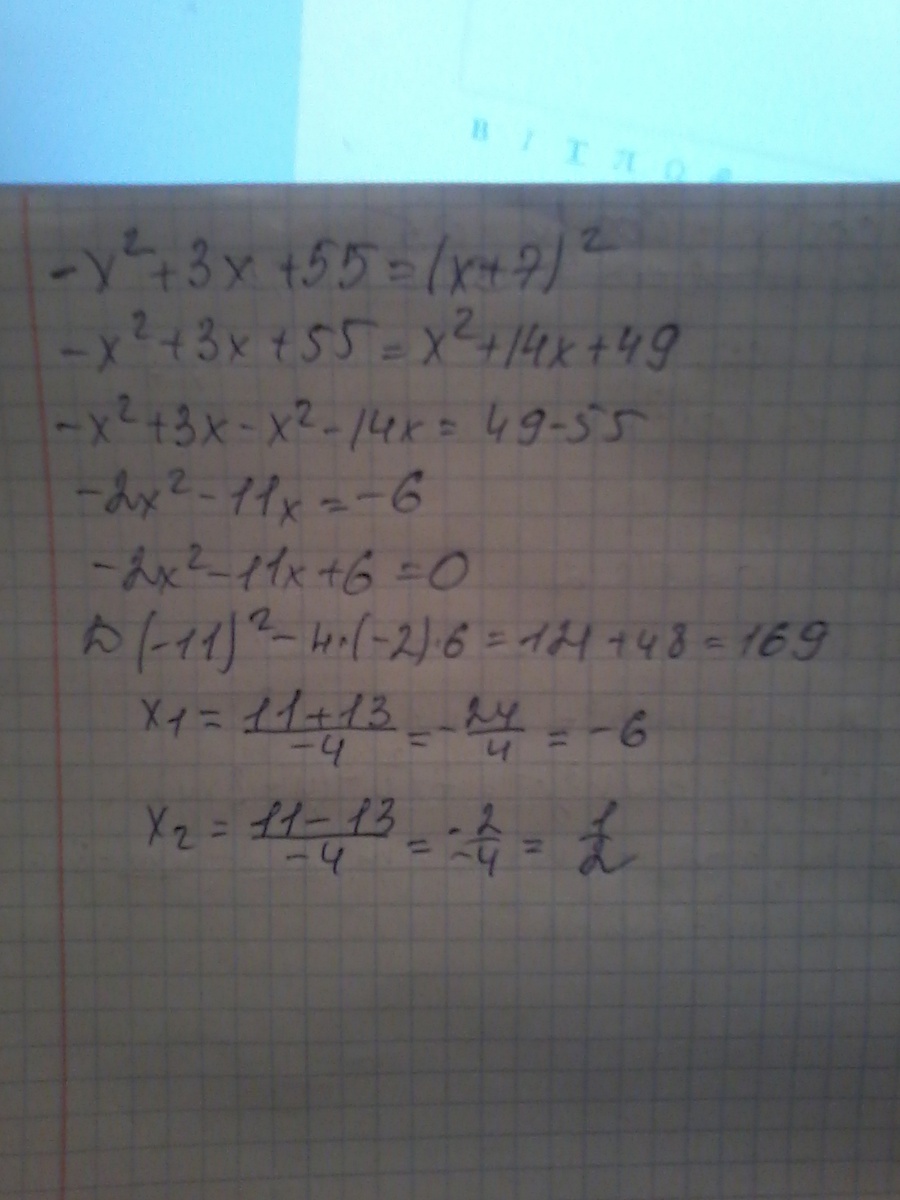 В І Т Л О
-x²+3x+55=(x+7)²
-x²+3x+55=x²+14x+49
-x²+3x-x²-14x=49-55
-2x²-11x=-6
-2x²-11x+6=0
D(-11)²-4·(-2)·6=121+48=169
x₁=(11+13)/(-4)=-24/4=-6
x₂=(11-13)/(-4)=-2/-4=1/2